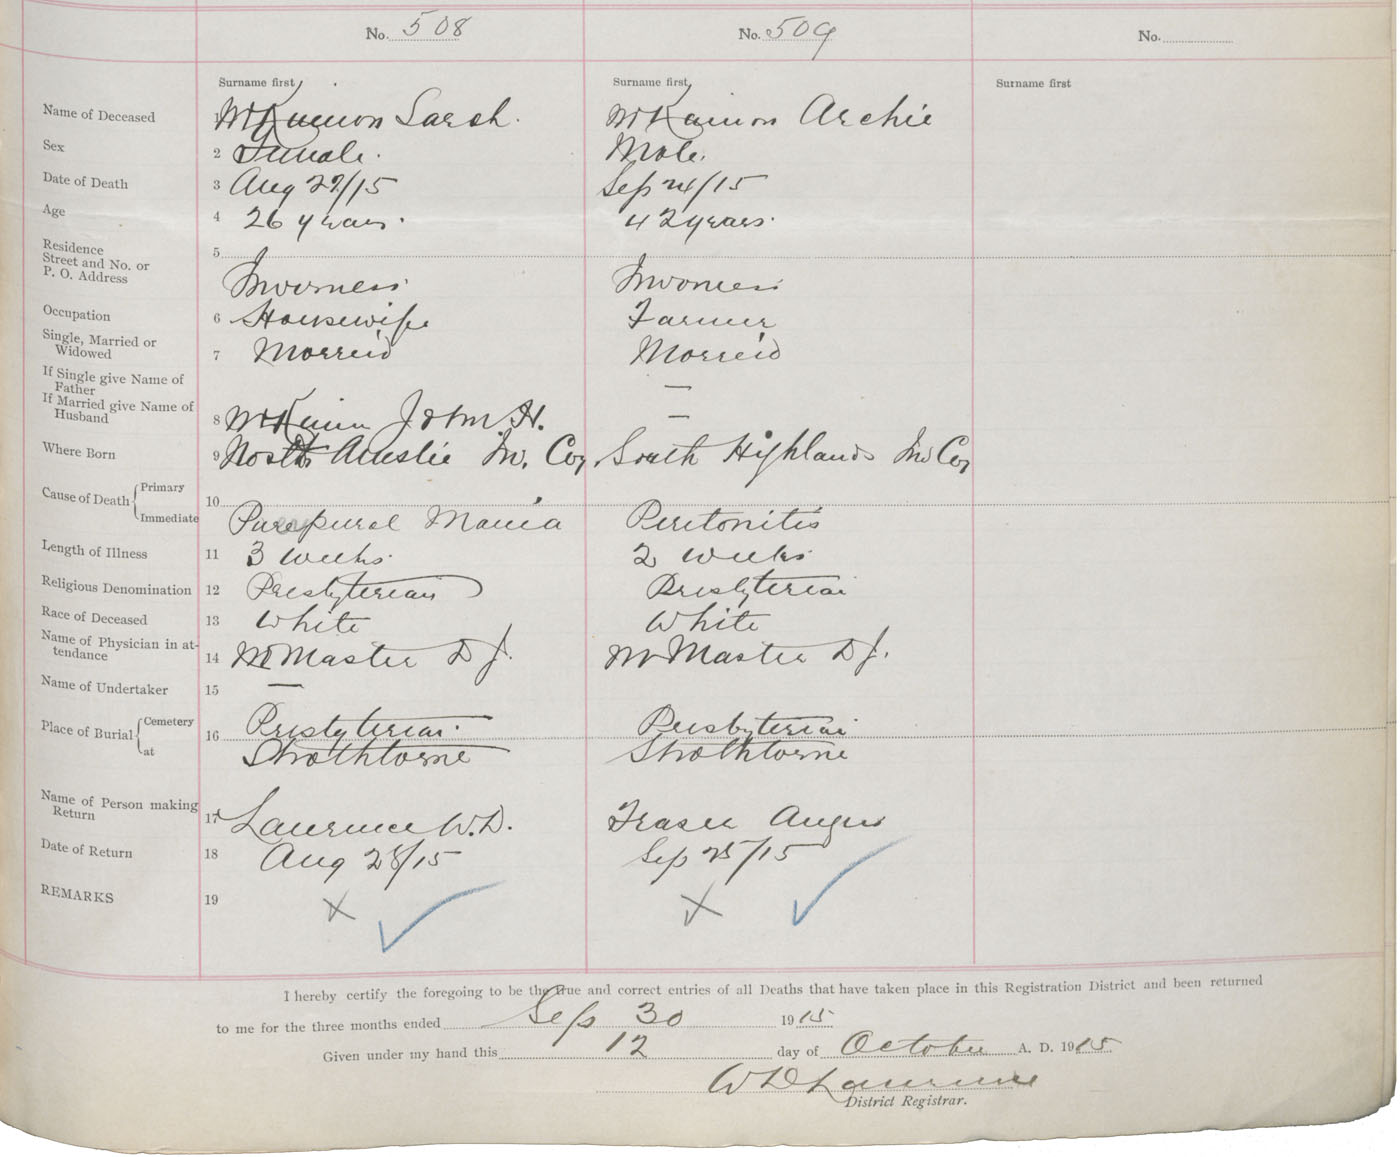 No. 508 No. 509 No.
Surname first Surname first Surname first
Name of Deceased 1 McKinnon Sarah. McKinnon Archie
Sex 2 Female. Male.
Date of Death 3 Aug 27/15 Sep 24/15
Age 4 26 years. 42 years.
Residence
Street and No. or 5
P. O. Address Inverness Inverness
Occupation 6 Housewife Farmer
Single, Married or
Widowed 7 Married Married
If Single give Name of
Father —
If Married give Name of
Husband 8 John H. —
Where Born 9 North Ainslie In. Co, South Highlands In Co,
Cause of Death Primary 10
Immediate Puerpural Mania Peritonitis
Length of Illness 11 3 weeks. 2 weeks.
Religious Denomination 12 Presbyterian Presbyterian
Race of Deceased 13 White White
Name of Physician in at-
tendance 14 McMaster D J. McMaster D J.
Name of Undertaker 15 —
Place of Burial Cemetery 16 Presbyterian. Presbyterian
at Strathlorne Strathlorne
Name of Person making
Return 17 Laurence W.D. Fraser Angus
Date of Return 18 Aug 28/15 Sep 25/15
REMARKS 19 x ✓ x ✓
I hereby certify the foregoing to be the true and correct entries of all Deaths that have taken place in this Registration District and been returned
to me for the three months ended Sep 30 1915
Given under my hand this 12 day of October A. D. 1915
W D Laurence
District Registrar.